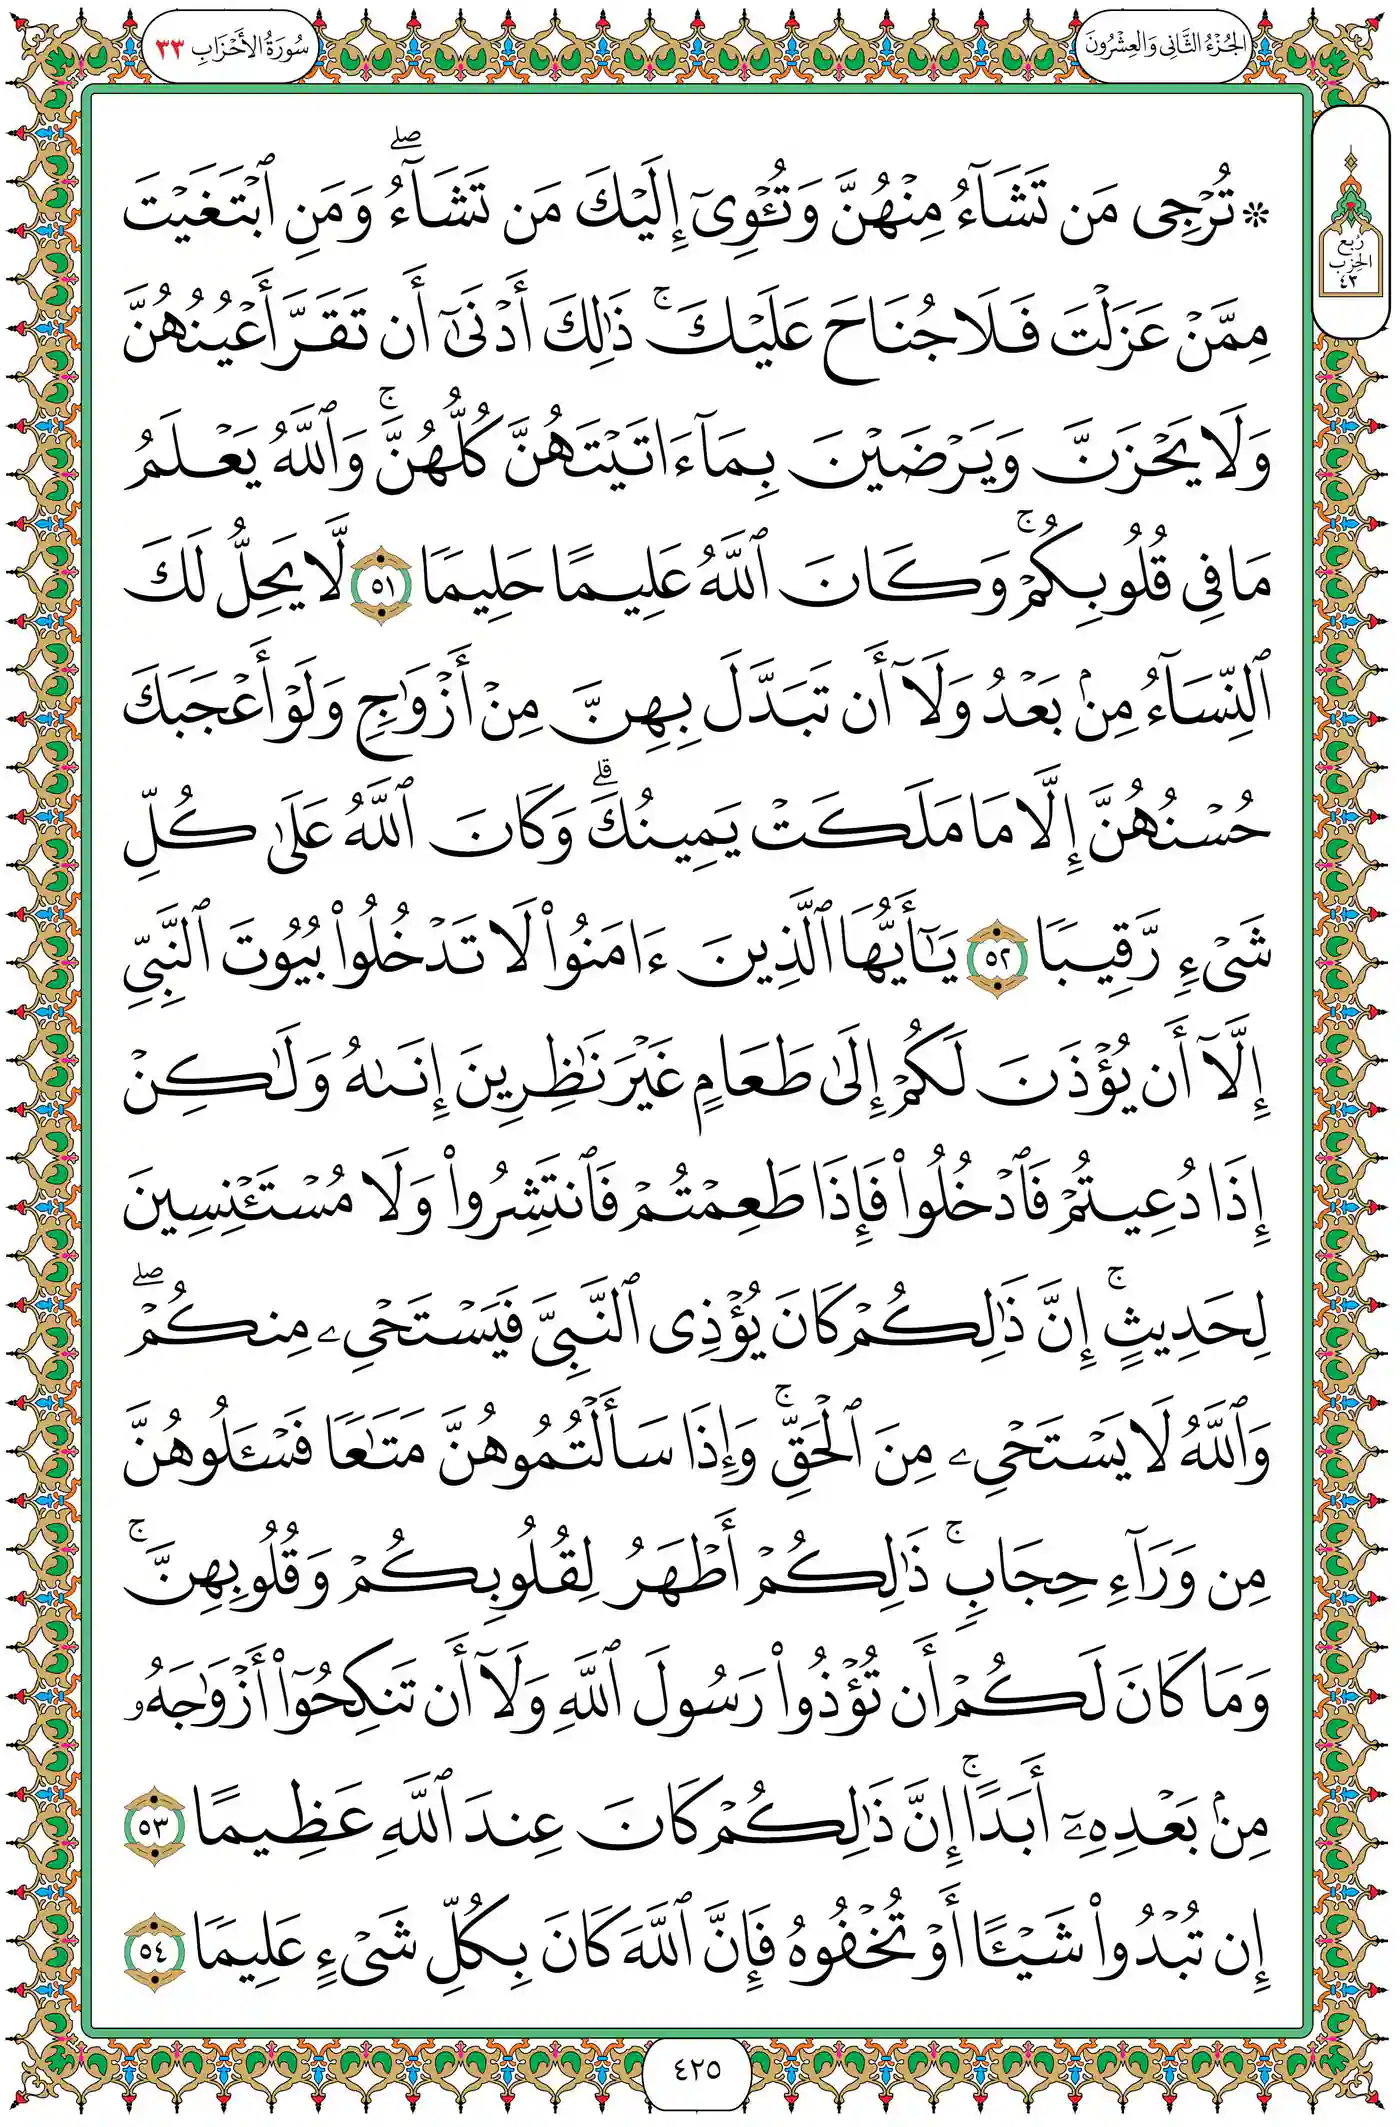 الجُزْءُ الثَّانِي وَالعِشْرُونَ
سُورَةُ الأَحْزَابِ ٣٣
رُبع
الحِزب
٤٣
۞ تُرْجِي مَن تَشَآءُ مِنْهُنَّ وَتُـْٔوِيٓ إِلَيْكَ مَن تَشَآءُۖ وَمَنِ ٱبْتَغَيْتَ
مِمَّنْ عَزَلْتَ فَلَا جُنَاحَ عَلَيْكَۚ ذَٰلِكَ أَدْنَىٰٓ أَن تَقَرَّ أَعْيُنُهُنَّ
وَلَا يَحْزَنَّ وَيَرْضَيْنَ بِمَآ ءَاتَيْتَهُنَّ كُلُّهُنَّۚ وَٱللَّهُ يَعْلَمُ
مَا فِي قُلُوبِكُمْۚ وَكَانَ ٱللَّهُ عَلِيمًا حَلِيمًا ٥١ لَّا يَحِلُّ لَكَ
ٱلنِّسَآءُ مِنۢ بَعْدُ وَلَآ أَن تَبَدَّلَ بِهِنَّ مِنْ أَزْوَٰجٍ وَلَوْ أَعْجَبَكَ
حُسْنُهُنَّ إِلَّا مَا مَلَكَتْ يَمِينُكَۗ وَكَانَ ٱللَّهُ عَلَىٰ كُلِّ
شَيْءٍ رَّقِيبًا ٥٢ يَٰٓأَيُّهَا ٱلَّذِينَ ءَامَنُوا۟ لَا تَدْخُلُوا۟ بُيُوتَ ٱلنَّبِيِّ
إِلَّآ أَن يُؤْذَنَ لَكُمْ إِلَىٰ طَعَامٍ غَيْرَ نَٰظِرِينَ إِنَىٰهُ وَلَٰكِنْ
إِذَا دُعِيتُمْ فَٱدْخُلُوا۟ فَإِذَا طَعِمْتُمْ فَٱنتَشِرُوا۟ وَلَا مُسْتَـْٔنِسِينَ
لِحَدِيثٍۚ إِنَّ ذَٰلِكُمْ كَانَ يُؤْذِي ٱلنَّبِيَّ فَيَسْتَحْيِۦ مِنكُمْۖ
وَٱللَّهُ لَا يَسْتَحْيِۦ مِنَ ٱلْحَقِّۚ وَإِذَا سَأَلْتُمُوهُنَّ مَتَٰعًا فَسْـَٔلُوهُنَّ
مِن وَرَآءِ حِجَابٍۚ ذَٰلِكُمْ أَطْهَرُ لِقُلُوبِكُمْ وَقُلُوبِهِنَّۚ
وَمَا كَانَ لَكُمْ أَن تُؤْذُوا۟ رَسُولَ ٱللَّهِ وَلَآ أَن تَنكِحُوٓا۟ أَزْوَٰجَهُۥ
مِنۢ بَعْدِهِۦٓ أَبَدًاۚ إِنَّ ذَٰلِكُمْ كَانَ عِندَ ٱللَّهِ عَظِيمًا ٥٣
إِن تُبْدُوا۟ شَيْـًٔا أَوْ تُخْفُوهُ فَإِنَّ ٱللَّهَ كَانَ بِكُلِّ شَيْءٍ عَلِيمًا ٥٤
٤٢٥